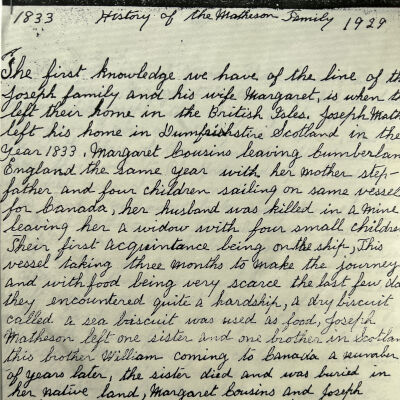 1833 History of the Matheson Family 1929
The first knowledge we have of the line of the
Joseph family and his wife Margaret, is when
left their home in the British Isles, Joseph Math
left his home in Dumfrieshire Scotland in the
Year 1833, Margaret Cousins leaving Cumberlan
England the same year with her mother step-
father and four children sailing on same vessel
for Canada, her husband was killed in a mine
leaving her a widow with four small children
Their first acquintance being on the ship, This
vessel taking three months to make the journey
and with food being very scarce the last few da
they encountered quite a hardship, a dry biscuit
called a sea biscuit was used as food, Joseph
Matheson left one sister and one brother in Scotlan
this brother William coming to Canada a number
of years later, the sister died and was buried in
her native land, Margaret Cousins and Joseph